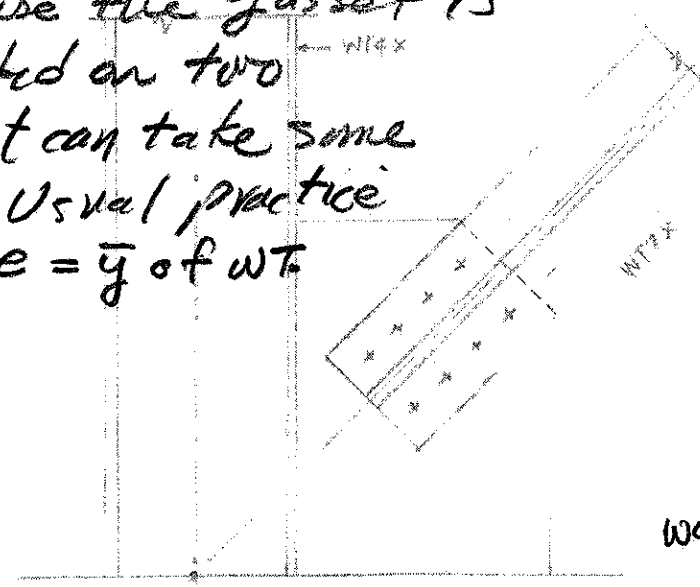 use the gusset is
on two
t can take some
Usual practice
e = y̅ of WT.
W14x
WT7x